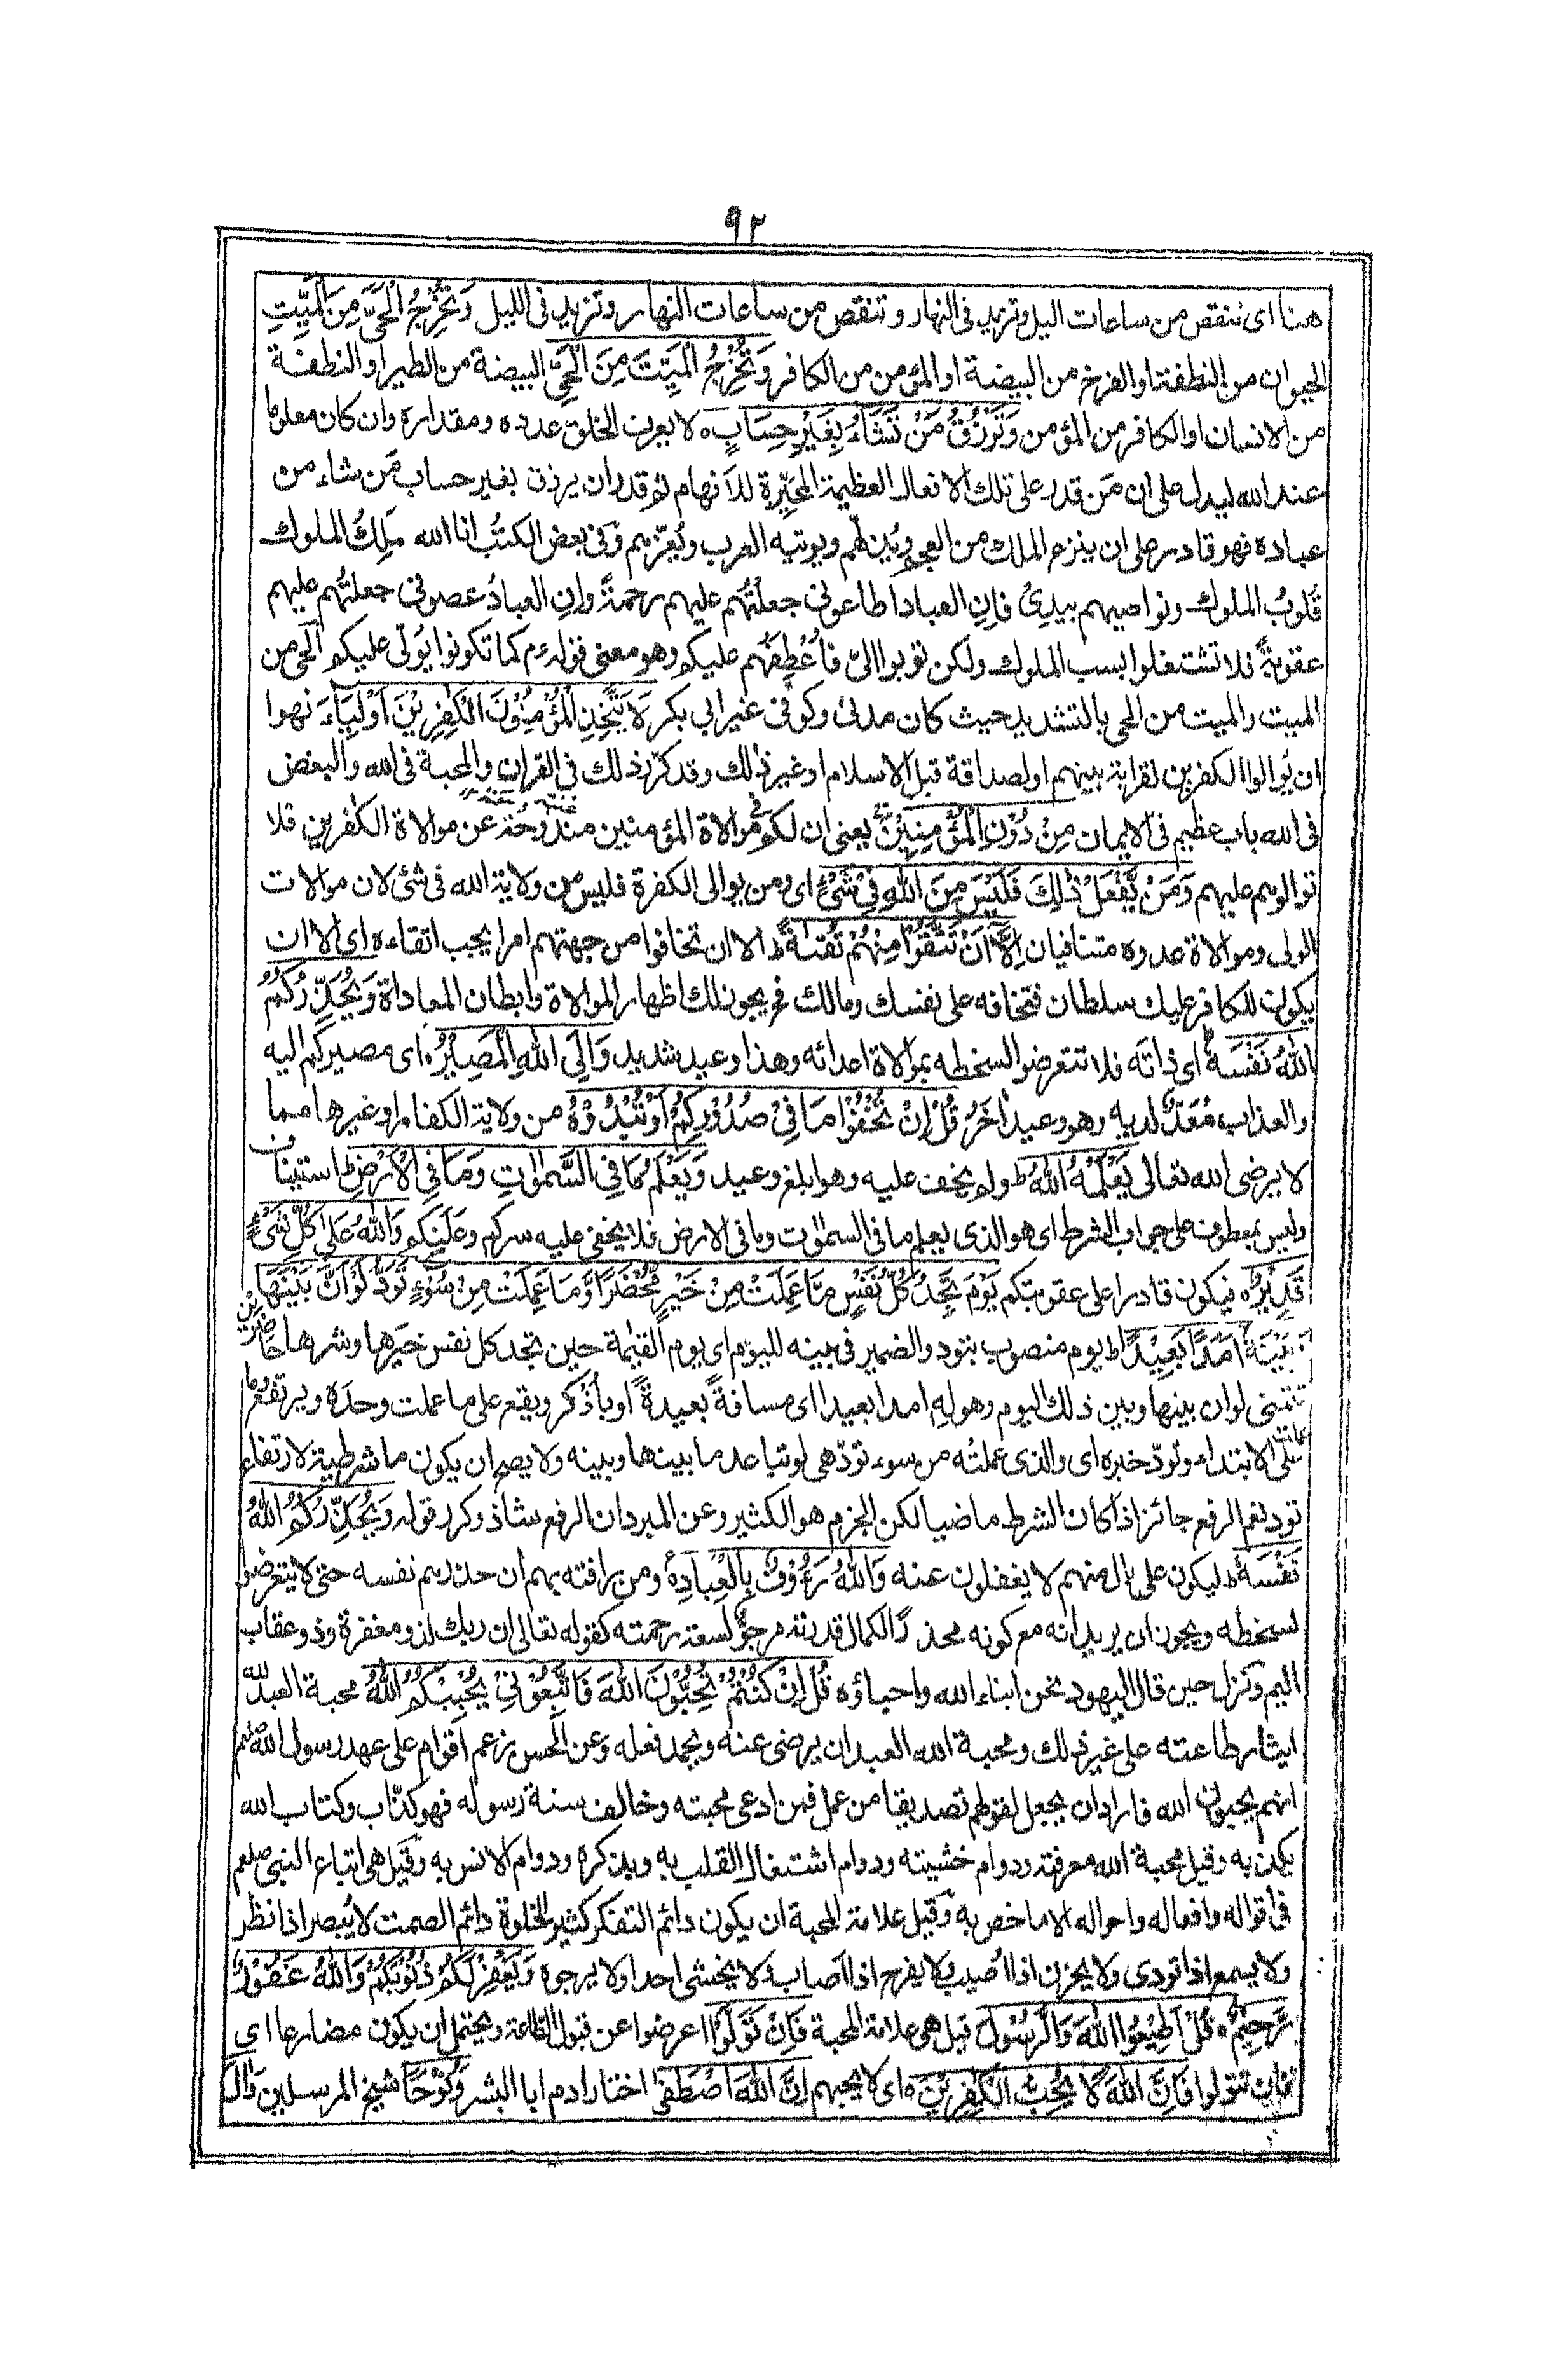 ٩٢
هنا اى ننقص من ساعات اليل وتزيد فى النهار وتنقص من ساعات النهار وتزيد فى الليل وَتُخْرِجُ الْحَيَّ مِنَ الْمَيِّتِ
الحيوان من النطفة او الفرخ من البيضة او المؤمن من الكافر وَتُخْرِجُ الْمَيِّتَ مِنَ الْحَيِّ البيضة من الطير او النطفة
من الانسان او الكافر من المؤمن وَتَرْزُقُ مَنْ تَشَآءُ بِغَيْرِ حِسَابٍ٥ لا يعرف الخلق عدده ومقداره وان كان معلوما
عند الله ليدل على ان مَن قدر على تلك الافعال العظيمة المحيِّرة للأفهام ثم قدر ان يرزق بغير حساب مَن شاء من
عباده فهو قادر على ان ينزع الملك من العجم ويُذلّهم ويوتيه العرب ويُعزّهم وفى بعض الكتُب انا الله مَلِكُ الملوك
قلوبُ الملوك ونواصيهم بيدىْ فاِنِ العباد اطاعونى جعلتُهم عليهم رحمةً وانِ العبادُ عصونى جعلتُهم عليهم
عقوبةً فلا تشتغلوا بسب الملوك ولكن توبوا الىّ فاُعْطِفُهم عليكم وهو معنى قولهءم كما تكونوا يُولّى عليكم الحى من
الميت والميت من الحى بالتشديد حيث كان مدنى وكوفى غير ابى بكر لَا يَتَّخِذِ الْمُؤْمِنُوْنَ الْكٰفِرِيْنَ اَوْلِيَآءَ نهوا
ان يُوالوا الكفرين لقرابة بينهم او لصداقة قبل الاسلام او غير ذلك وقد كرّر ذلك فى القراٰن والمحبة فى الله والبغض
فى الله باب عظيم فى الايمان مِنْ دُوْنِ الْمُؤْمِنِيْنَ يعنى ان لكم فى موالاة المؤمنين مندُوحَة عن موالاة الكٰفرين فلا
توالوهم عليهم وَمَنْ يَّفْعَلْ ذٰلِكَ فَلَيْسَ مِنَ اللّٰهِ فِىْ شَىْءٍ اى ومن يوالى الكفرة فليس من ولاية الله فى شئ لان موالات
الولى وموالاة عدوه متنافيان اِلَّآ اَنْ تَتَّقُوْا مِنْهُمْ تُقٰىةً ط الا ان تخافوا من جهتهم امرا يجب اتقاءه اى الا ان
يكون للكافر عليك سلطان فتخافه على نفسك ومالك فح يجوز لك اظهار الموالاة وابطان المعاداة وَيُحَذِّرُكُمُ
اللّٰهُ نَفْسَهٗ اى ذاتَه فلا تتعرضوا لسخطه بموالاة اعدائه وهذا وعيد شديد وَاِلَى اللّٰهِ الْمَصِيْرُ٥ اى مصيركم اليه
والعذاب مُعَدّ لديه وهو وعيد اٰخَر قُلْ اِنْ تُخْفُوْا مَا فِىْ صُدُوْرِكُمْ اَوْ تُبْدُوْهُ من ولاية الكفار او غيرها مما
لا يرضى الله تعالى يَعْلَمْهُ اللّٰهُ ط ولم يخف عليه وهو ابلغ وعيد وَيَعْلَمُ مَا فِى السَّمٰوٰتِ وَمَا فِى الْاَرْضِ ط استيناف
وليس بمعطوف على جواب الشرط اى هو الذى يعلم ما فى السمٰوٰت وما فى الارض فلا يخفى عليه سركم وعلنكم وَاللّٰهُ عَلٰى كُلِّ شَىْءٍ
قَدِيْرٌ٥ فيكون قادرا على عقوبتكم يَوْمَ تَجِدُ كُلُّ نَفْسٍ مَّا عَمِلَتْ مِنْ خَيْرٍ مُّحْضَرًا وَّمَا عَمِلَتْ مِنْ سُوْٓءٍ تَوَدُّ لَوْ اَنَّ بَيْنَهَا
وَبَيْنَهٗٓ اَمَدًۢا بَعِيْدًا ط يوم منصوب بتود والضمير فى بينه لليوم اى يوم القيٰمة حين تجد كل نفس خيرها وشرها حاضرين
تتمنى لو ان بينها وبين ذلك اليوم وهوله امدا بعيدا اى مسافةً بعيدةً او باُذكر ويقع على ما عملت وحدَه ويرتفع وما
عملت على الابتداء وتودّ خبره اى والذى عملتْه من سوء تودّ هى لو تباعد ما بينها وبينه ولا يصح ان يكون ما شرطية لارتفاع
تود نعم الرفع جائز اذا كان الشرط ماضيا لكن الجزم هو الكثير وعن المبرد ان الرفع شاذ وكرر قوله وَيُحَذِّرُكُمُ اللّٰهُ
نَفْسَهٗ ط ليكون على بال منهم لا يغفلون عنه وَاللّٰهُ رَءُوْفٌ بِالْعِبَادِ٥ ومن رافته بهم ان حذرهم نفسه حتى لا يتعرضوا
لسخطه ويجوز ان يريد انه مع كونه محذرًا لكمال قدرته مرجوّ لسعة رحمته كقوله تعالى ان ربك لذو مغفرة وذو عقاب
اليم ونزل حين قال اليهود نحن ابناء الله واحباؤه قُلْ اِنْ كُنْتُمْ تُحِبُّوْنَ اللّٰهَ فَاتَّبِعُوْنِىْ يُحْبِبْكُمُ اللّٰهُ محبة العبد لله
ايثار طاعته على غير ذلك ومحبة الله العبد ان يرضى عنه ويحمد فعله وعن الحسن زعم اقوام على عهد رسول الله صلعم
انهم يحبون الله فاراد ان يجعل لقولهم تصديقا من عمل فمن ادعى محبته وخالف سنة رسوله فهو كذّاب وكتاب الله
يكذبه وقيل محبة الله معرفته ودوام خشيته ودوام اشتغال القلب به وبذكره ودوام الانس به وقيل هى اتباع النبى صلعم
فى اقواله وافعاله واحواله الا ما خص به وقيل علامة المحبة ان يكون دائم التفكر كثير الخلوة دائم الصمت لا يُبصر اذا نظر
ولا يسمع اذا نودى ولا يحزن اذا اُصيب ولا يفرح اذا اَصاب ولا يخشى احدا ولا يرجوه وَيَغْفِرْ لَكُمْ ذُنُوْبَكُمْ وَاللّٰهُ غَفُوْرٌ
رَّحِيْمٌ٥ قُلْ اَطِيْعُوا اللّٰهَ وَالرَّسُوْلَ قيل هى علامة المحبة فَاِنْ تَوَلَّوْا اعرضوا عن قبول الطاعة ويحتمل ان يكون مضارعا اى
فان تتولوا فَاِنَّ اللّٰهَ لَا يُحِبُّ الْكٰفِرِيْنَ٥ اى لا يحبهم اِنَّ اللّٰهَ اصْطَفٰٓى اختار ادم ابا البشر وَنُوْحًا شيخ المرسلين وَاٰلَ